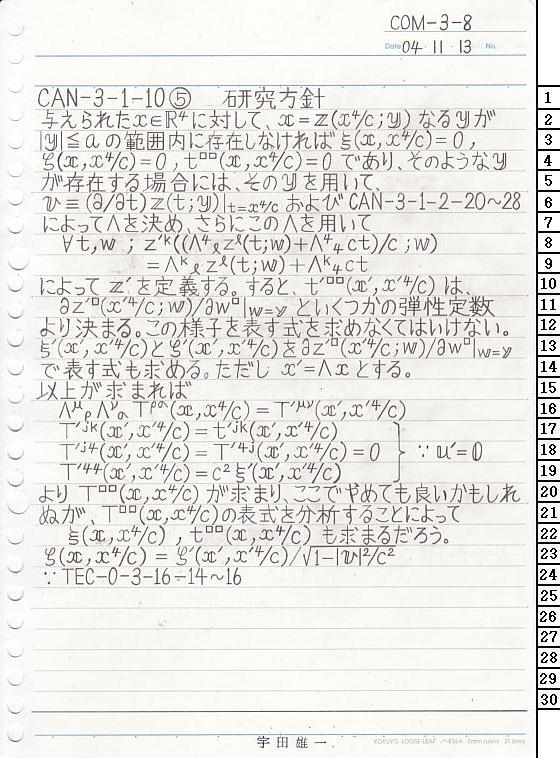 COM-3-8
Date 04・11・13 No.
CAN-3-1-10⑤ 研究方針
与えられたx∈R⁴に対して、x=z(x⁴/c;y)なるyが
|y|≦aの範囲内に存在しなければξ(x,x⁴/c)=0,
ζ(x,x⁴/c)=0,t□□(x,x⁴/c)=0であり、そのようなy
が存在する場合には、そのyを用いて、
v≡(∂/∂t)z(t;y)|t=x⁴/c およびCAN-3-1-2-20~28
によってΛを決め、さらにこのΛを用いて
∀t,w ; z'ᵏ((Λ⁴ℓzˡ(t;w)+Λ⁴₄ct)/c;w)
=Λᵏℓzˡ(t;w)+Λᵏ₄ct
によってz'を定義する。すると、t'□□(x',x'⁴/c)は、
∂z'□(x'⁴/c;w)/∂w□|w=y といくつかの弾性定数
より決まる。この様子を表す式を求めなくてはいけない。
ξ'(x',x'⁴/c)とζ'(x',x'⁴/c)を∂z'□(x'⁴/c;w)/∂w□|w=y
で表す式も求める。ただしx'=Λxとする。
以上が求まれば
Λᵘρ Λᵛα Tᵖᵅ(x,x⁴/c)=T'ᵘᵛ(x',x'⁴/c)
T'ʲᵏ(x',x'⁴/c)=t'ʲᵏ(x',x'⁴/c)
T'ʲ⁴(x',x'⁴/c)=T'⁴ʲ(x',x'⁴/c)=0 ∵u'=0
T'⁴⁴(x',x'⁴/c)=c²ξ'(x',x'⁴/c)
よりT□□(x,x⁴/c)が求まり、ここでやめても良いかもしれ
ぬが、T□□(x,x⁴/c)の表式を分析することによって
ξ(x,x⁴/c),t□□(x,x⁴/c)も求まるだろう。
ζ(x,x⁴/c)=ζ'(x',x'⁴/c)/√1-|v|²/c²
∵TEC-0-3-16÷14~16
宇田雄一
KOKUYO LOOSE-LEAF ノ-836A 7mm ruled 31 lines
1
2
3
4
5
6
7
8
9
10
11
12
13
14
15
16
17
18
19
20
21
22
23
24
25
26
27
28
29
30